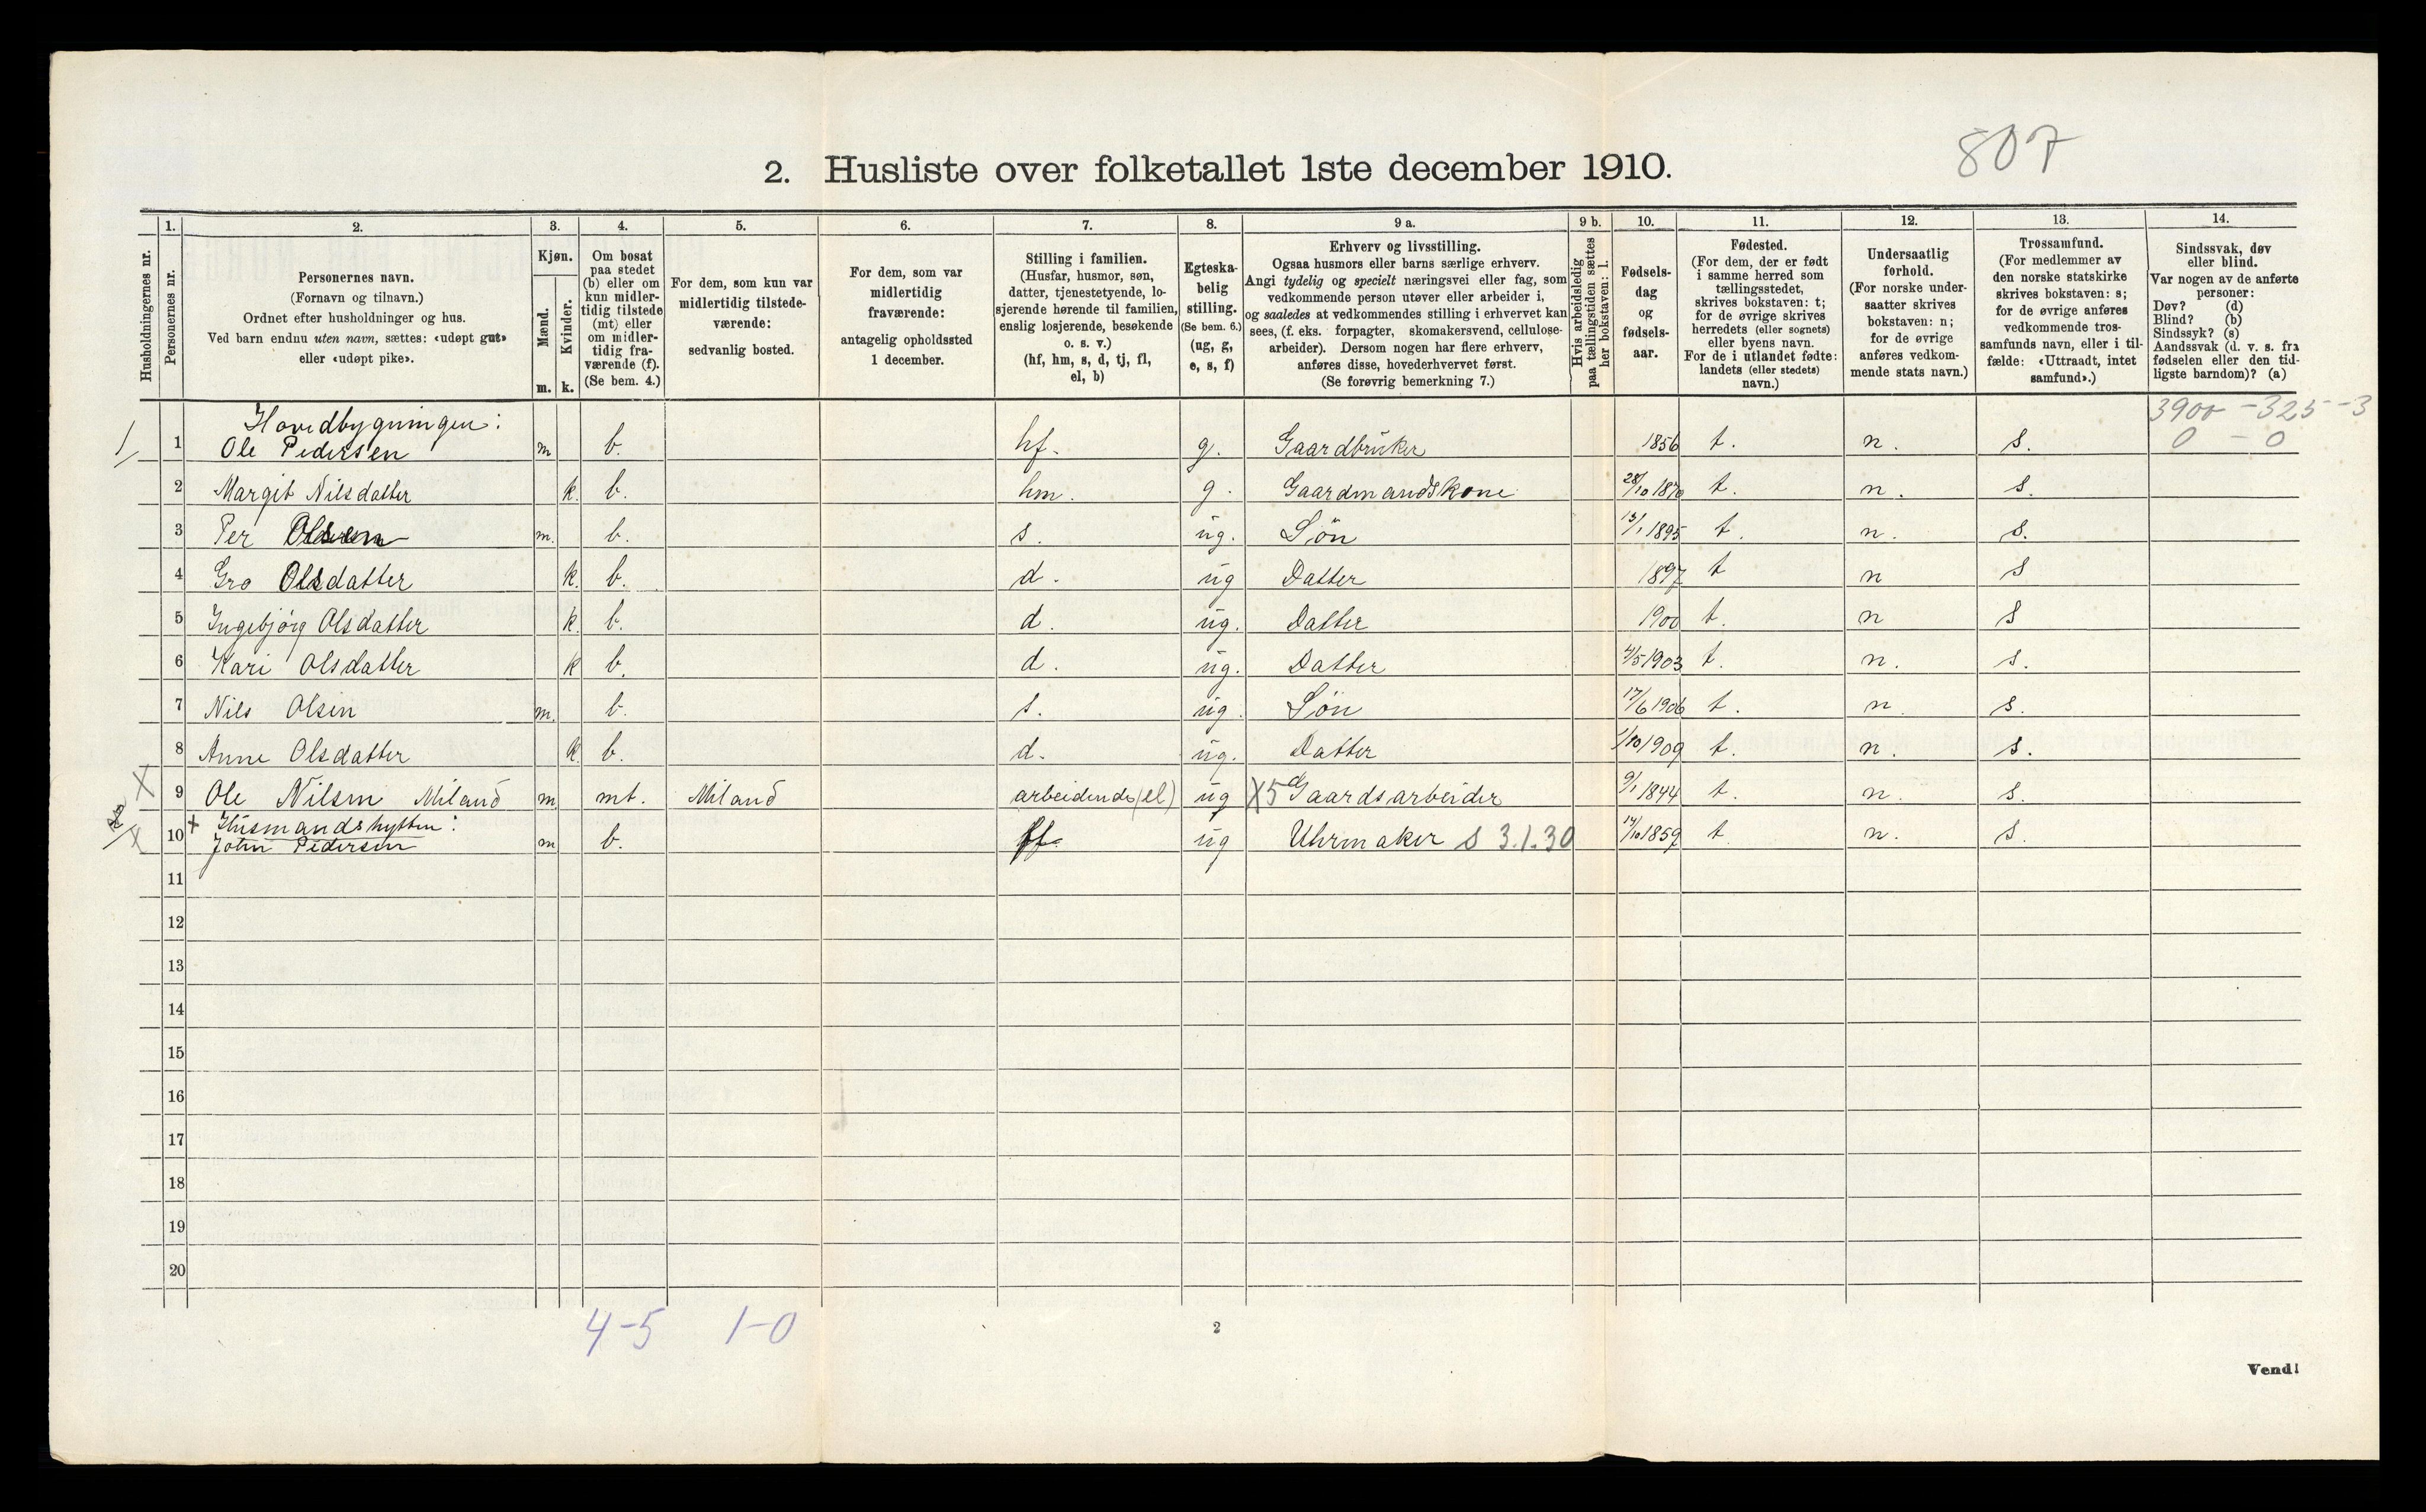 807
2. Husliste over folketallet 1ste december 1910.
Husholdningernes nr.
1.
Personernes nr.
2.
Personernes navn.
(Fornavn og tilnavn.)
Ordnet efter husholdninger og hus.
Ved barn endnu uten navn, sættes: «udøpt gut»
eller «udøpt pike».
3.
Kjøn.
Mænd.
m.
Kvinder.
k.
4.
Om bosat
paa stedet
(b) eller om
kun midler-
tidig tilstede
(mt) eller
om midler-
tidig fra-
værende (f).
(Se bem. 4.)
5.
For dem, som kun var
midlertidig tilstede-
værende:
sedvanlig bosted.
6.
For dem, som var
midlertidig
fraværende:
antagelig opholdssted
1 december.
7.
Stilling i familien.
(Husfar, husmor, søn,
datter, tjenestetyende, lo-
sjerende hørende til familien,
enslig losjerende, besøkende
o. s. v.)
(hf, hm, s, d, tj, fl,
el, b)
8.
Egteska-
belig
stilling.
(Se bem. 6.)
(ug, g,
e, s, f)
9 a.
Erhverv og livsstilling.
Ogsaa husmors eller barns særlige erhverv.
Angi tydelig og specielt næringsvei eller fag, som
vedkommende person utøver eller arbeider i,
og saaledes at vedkommendes stilling i erhvervet kan
sees, (f. eks. forpagter, skomakersvend, cellulose-
arbeider). Dersom nogen har flere erhverv,
anføres disse, hovederhvervet først.
(Se forøvrig bemerkning 7.)
9 b.
Hvis arbeidsledig
paa tællingstiden sættes
her bokstaven: l.
10.
Fødsels-
dag
og
fødsels-
aar.
11.
Fødested.
(For dem, der er født
i samme herred som
tællingsstedet,
skrives bokstaven: t;
for de øvrige skrives
herredets (eller sognets)
eller byens navn.
For de i utlandet fødte:
landets (eller stedets)
navn.)
12.
Undersaatlig
forhold.
(For norske under-
saatter skrives
bokstaven: n;
for de øvrige
anføres vedkom-
mende stats navn.)
13.
Trossamfund.
(For medlemmer av
den norske statskirke
skrives bokstaven: s;
for de øvrige anføres
vedkommende tros-
samfunds navn, eller i til-
fælde: «Uttraadt, intet
samfund».)
14.
Sindssvak, døv
eller blind.
Var nogen av de anførte
personer:
Døv? (d)
Blind? (b)
Sindssyk? (s)
Aandssvak (d. v. s. fra
fødselen eller den tid-
ligste barndom)? (a)
3900 - 325 - 3
0 - 0
Hovedbygningen:
1 Ole Pedersen m b. hf. g. Gaardbruker 1856 t. n. s.
2 Margit Nilsdatter k. b. hm. g. Gaardmandskone 28/10 1870 t. n. s.
3 Per Olsen m. b. s. ug. Søn 13/1 1895 t. n. s.
4 Gro Olsdatter k. b. d. ug Datter 1897 t n s
5 Ingebjørg Olsdatter k. b. d. ug. Datter 1900 t. n s
6 Kari Olsdatter k b. d. ug. Datter 4/5 1903 t. n. s.
7 Nils Olsen m. b. s. ug. Søn 17/6 1906 t. n. s.
8 Anne Olsdatter k. b. d. ug. Datter 1/10 1909 t. n. s.
X 9 Ole Nilsen Miland m. mt. Miland arbeidende (el) ug X5 Gaardsarbeider 9/1 1844 t. n. s.
x Husmandshytten:
X 10 John Pedersen m b. ug Uhrmaker s 3.1.30 14/10 1859 t n. s.
11
12
13
14
15
16
17
18
19
20
4-5 1-0
2
Vend!